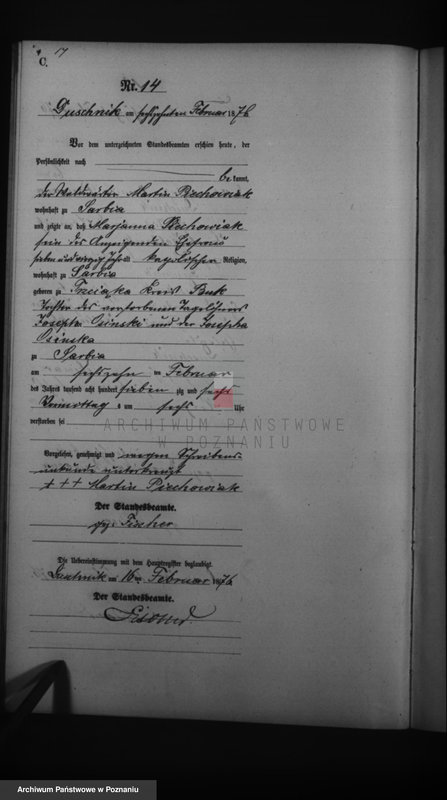 17
C.
Nr. 14
Duschnik am sechszehnten Februar 1876
Vor dem unterzeichneten Standesbeamten erschien heute, der
Persönlichkeit nach
bekannt,
der Waldwärter Martin Piechowiak
wohnhaft zu Sarbia
und zeigte an, daß Marjanna Piechowiak
sein des Anzeigenden Ehefrau
sieben und vierzig Jahr alt katholischer Religion,
wohnhaft zu Sarbia
geboren zu Trzcianka Kreis Buk
Tochter des verstorbenen Tagelöhners
Joseph Osinski und der Josepha
Osinska
zu Sarbia
am sechszehn ten Februar
des Jahres tausend acht hundert sieben zig und sechs
Vormittag s um sechs Uhr
verstorben sei
ARCHIWUM PAŃSTWOWE
W POZNANIU
Vorgelesen, genehmigt und wegen Schreibens
unkunde unterkreuzt
+++ Martin Piechowiak
Der Standesbeamte.
gez. Fischer
Die Uebereinstimmung mit dem Hauptregister beglaubigt.
Duschnik am 16ten Februar 1876
Der Standesbeamte.
Archiwum Państwowe w Poznaniu